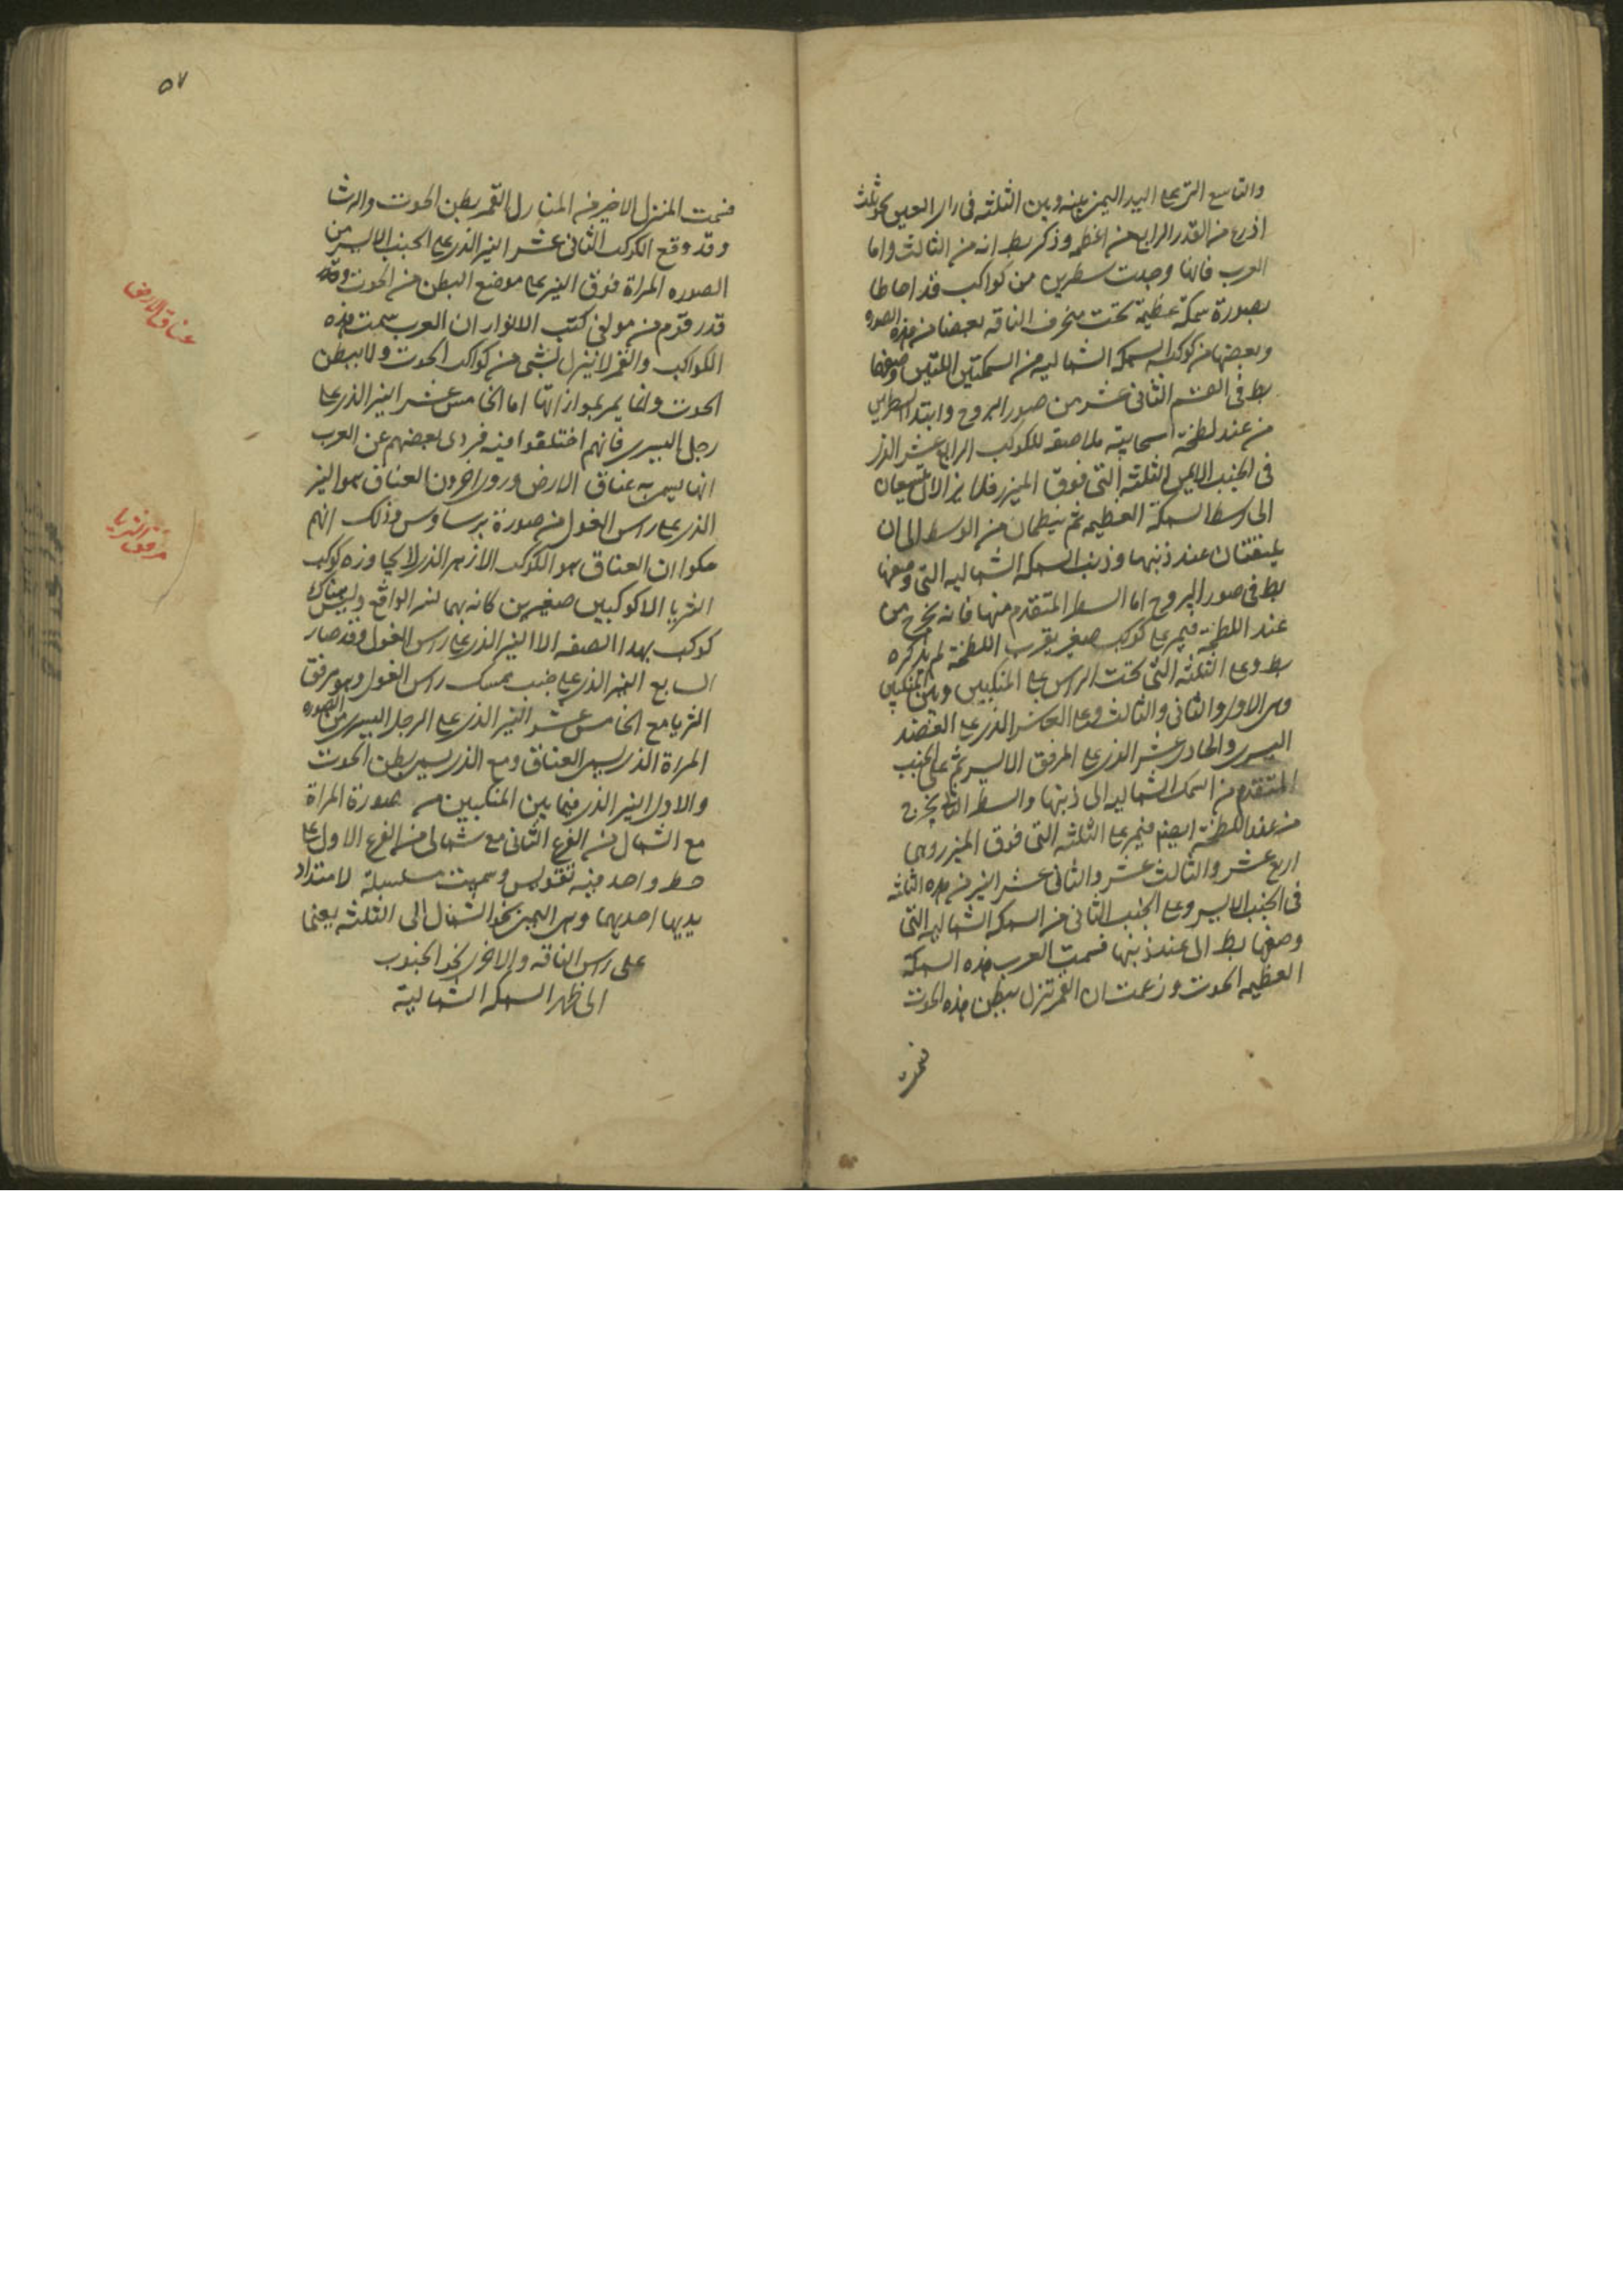 والتاسع التى على اليد اليمنى بينه وبين الثلثه فى راى العين نحو ثلث
اذرع من القدر الرابع من اعظمه وذكر بط انه من الثالث واما
العرب فانها وجدت سطرين من كواكب قد احاطا
بصورة سمكة عظيمة تحت منخرف الناقه بعضها من هذه الصوره
وبعضها من كوكبة السمكه الشماليه من السمكتين اللتين وصفهما
بط فى القسم الثانى عشر من صور البروج وابتدا السطرين
من عند لطخة سحابية ملاصقه للكوكب الرابع عشر الذى
فى الجنب الايمن الثلثه التى فوق الميزر فلما يزالا يتسعان
الى وسط السمكة العظيمه ثم ينيظمان من الوسط الى ان
يلتقتان عند ذنبها وذنب السمكه الشماليه التى وصفها
بط فى صور البروج اما السطر المتقدم منهما فانه يخرج من
عند اللطخة فيمر على كوكب صغير بقرب اللطخة لم يذكره
بط وعلى الثلثه التى تحت الراس على المنكبين وبين المنكبين
وهى الاول والثانى والثالث وعلى العاشر الذى على العضد
اليسرى والحادى عشر الذى على المرفق الايسر ثم على الجنب
المتقدم من السمكه الشماليه الى ذنبها والسطر الثانى يخرج
من عند اللطخة ايضا فيمر على الثلثه التى فوق الميزر وهى
اربع عشر والثالث عشر والثانى عشر النير من هذه الثلثه
فى الجنب الايسر وعلى الجنب الثانى من السمكه الشماليه التى
وصفها بط الى عند ذنبها فسمت العرب هذه السمكه
العظيمه الحوت وزعمت ان القمر تنزل ببطن هذه الحوت
فسمت
٥٧
فسمت المنزل الاخير من المنازل القمر بطن الحوت والرشا
وقد وقع الكوكب الثانى عشر النير الذى على الجنب الايسر من
الصوره المراة فوق النير على موضع البطن من الحوت وقد
قدر قوم من مولفى كتب الانوار ان العرب سمت هذه
الكواكب والقمر لا ينزل بشى من كواكب الحوت ولا ببطن
الحوت وانما يمر بموازاتها اما الخامس عشر النير الذى على
رجل اليسرى فانهم اختلفوا فيه فروى بعضهم عن العرب
انها يسمى به عناق الارض وروى اخرون العناق هو النير
الذى على راس الغول من صورة برساوس وذلك انهم
حكوا ان العناق هو الكوكب الازهر الذى لا يجاوزه كوكب
الثريا الا كوكبين صغيرين كانه بهما نسر الواقع وليس هناك
كوكب بهذا الصفه الا النير الذى على راس الغول وقد صار
السابع النير الذى على جنب ممسك راس الغول وهو مرفق
الثريا مع الخامس عشر النير الذى على الرجل اليسرى من الصوره
المراة الذى يسمى العناق ومع الذى يسمى بطن الحوت
والاول النير الذى فيما بين المنكبين من صورة المراة
مع الشمال من الفرع الثانى مع شمالى من الفرع الاول على
خط واحد فيه تقويس وسميت مسلسلة لامتداد
يديها احديهما وهى اليمنى نحو الشمال الى الثلثه يعنى
على راس الناقه والاخرى نحو الجنوب
الى ظهر السمكه الشمالية
عناق الارض
مرفق الثريا